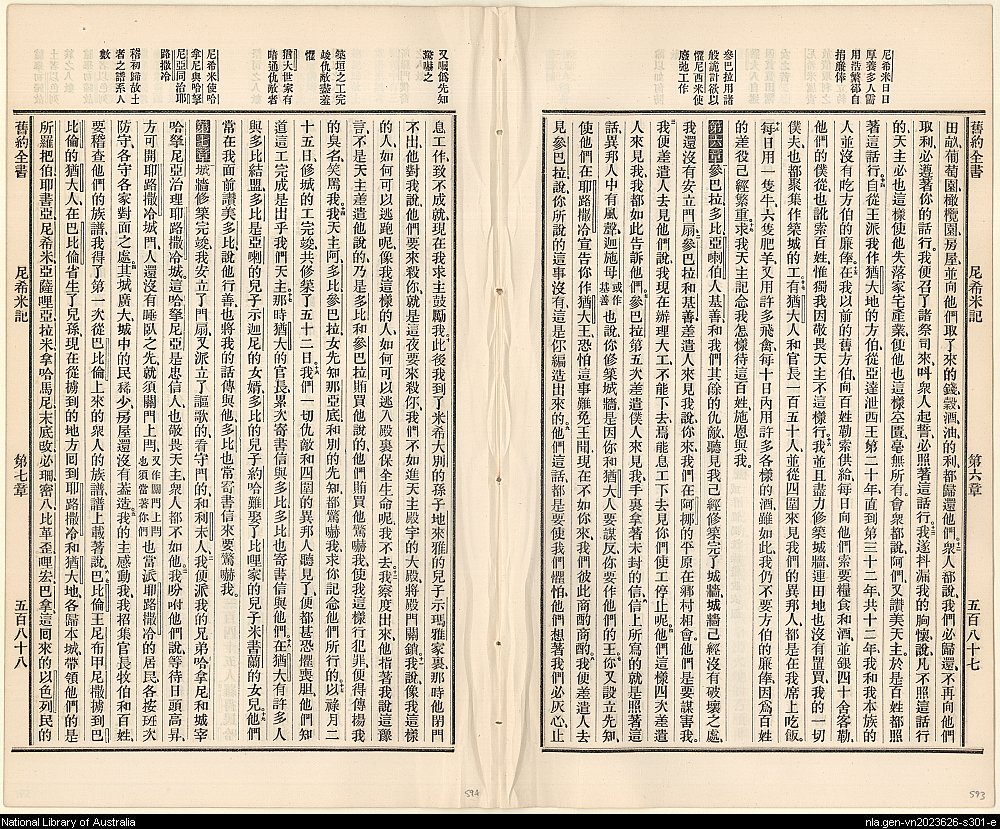 尼希米日日
厚養多人需
用浩繁卻自
捐廉俸
參巴拉用諸
般詭計欲以
懼尼西米使
廢弛工作
舊約全書 尼希米記 第六章 五百八十七
田畝葡萄園橄欖園房屋並向他們取了來的錢穀酒油的利都歸還他們衆人都說我們必歸還不再向他們
取利必遵著你的話行我便召了諸祭司來呌衆人起誓必照著這話行我遂抖漏我的胸懷說凡不照這話行
的天主必也這樣使他失落家宅產業使他也這樣空匱毫無所有會衆都說阿們又讚美天主於是百姓都照
著這話行自從王派我作猶大地的方伯從亞達泄西王第二十年直到第三十二年共十二年我和我本族的
人並沒有吃方伯的廉俸在我以前的舊方伯向百姓勒索供給每日向他們索要糧食和酒並銀四十舍客勒
他們的僕從也訛索百姓惟獨我因敬畏天主不這樣行我並且盡力修築城牆連田地也沒有置買我的一切
僕夫也都聚集作築城的工有猶大人和官長一百五十人並從四圍來見我們的異邦人都是在我席上吃飯
每日用一隻牛六隻肥羊又用許多飛禽每十日內用許多各樣的酒雖如此我仍不要方伯的廉俸因爲百姓
的差役已經繁重求我天主記念我怎樣待這百姓施恩與我
第六章參巴拉多比亞喇伯人基善和我們其餘的仇敵聽見我已經修築完了城牆城牆已經沒有破壞之處
我還沒有安立門扇參巴拉和基善差遣人來見我說你來我們在阿挪的平原在鄉村相會他們是要謀害我
我便差遣人去見他們說我現在辦理大工不能下去焉能息工下去見你們使工停止呢他們這樣四次差遣
人來見我我都如此告訴他們參巴拉第五次差遣僕人來見我手裏拿著未封的信信上所寫的就是照著這
話異邦人中有風聲迦施毋或作基善也說你修築城牆是因你和猶大人要謀反你要作他們的王你又設立先知
使他們在耶路撒冷宣告你作猶大王恐怕這事難免王聞現在不如你來我們彼此商酌商酌我便差遣人去
見參巴拉說你所說的這事沒有這是你編造出來的他們這話都是要使我們懼怕他們想著我們必灰心止
又囑僞先知
驚嚇之
築垣之工完
竣仇敵盡羞
懼
猶大世家有
暗通仇敵者
尼希米使哈
拿尼與哈拏
尼亞同治耶
路撒冷
稽初歸故土
者之譜系人
數
息工作致不成就現在我求主鼓勵我此後我到了米希大別的孫子地來雅的兒子示瑪雅家裏那時他閉門
不出他對我說他們要來殺你就是這夜要來殺你我們不如進天主殿宇的大殿將殿門關鎖我說像我這樣
的人如何可以逃跑呢像我這樣的人如何可以逃入殿裏保全生命呢我不去我察度出來他指著我說這豫
言不是天主差遣他說的乃是多比和參巴拉賄買他說的他們賄買他驚嚇我使我這樣行犯罪便得傳揚我
的臭名笑罵我我天主阿多比參巴拉女先知那亞底和別的先知都驚嚇我求你記念他們所行的以祿月二
十五日修城的工完竣共修築了五十二日我們一切仇敵和四圍的異邦人聽見了便都甚恐懼喪胆他們知
道這工完成是出乎我們天主那時猶大的官長屢次寄書信與多比多比也寄書信與他們在猶大有許多人
與多比結盟多比是亞喇的兒子示迦尼的女婿多比的兒子約哈難娶了比哩家的兒子米書蘭的女兒他們
常在我面前讚美多比說他行善也將我的話傳與他多比也常寄書信來要驚嚇我
第七章城牆修築完竣我安立了門扇又派立了謳歌的看守門的和利未人我便派我的兄弟哈拿尼和城宰
哈拏尼亞治理耶路撒冷城這哈拏尼亞是忠信人也敬畏天主衆人都不如他我吩咐他們說等待日頭高昇
方可開耶路撒冷城門人還沒有睡臥之先就須關門上閂又作關門上閂也須當著你們也當派耶路撒冷的居民各按班次
防守各守各家對面之處其城廣大城中的民稀少房屋還沒有葢造我的主感動我我招集官長牧伯和百姓
要稽查他們的族譜我得了第一次從巴比倫上來的衆人的族譜譜上載著說巴比倫王尼布甲尼撒擄到巴
比倫的猶大人在巴比倫省生了兒孫現在從擄到的地方回到耶路撒冷和猶大地各歸本城帶領他們的是
所羅把伯耶書亞尼希米亞薩哩亞拉米拿哈馬尼末底改必珊密八比革歪哩宏巴拿這囘來的以色列民的
舊約全書 尼希米記 第七章 五百八十八
594
593
National Library of Australia
nla.gen-vn2023626-s301-e